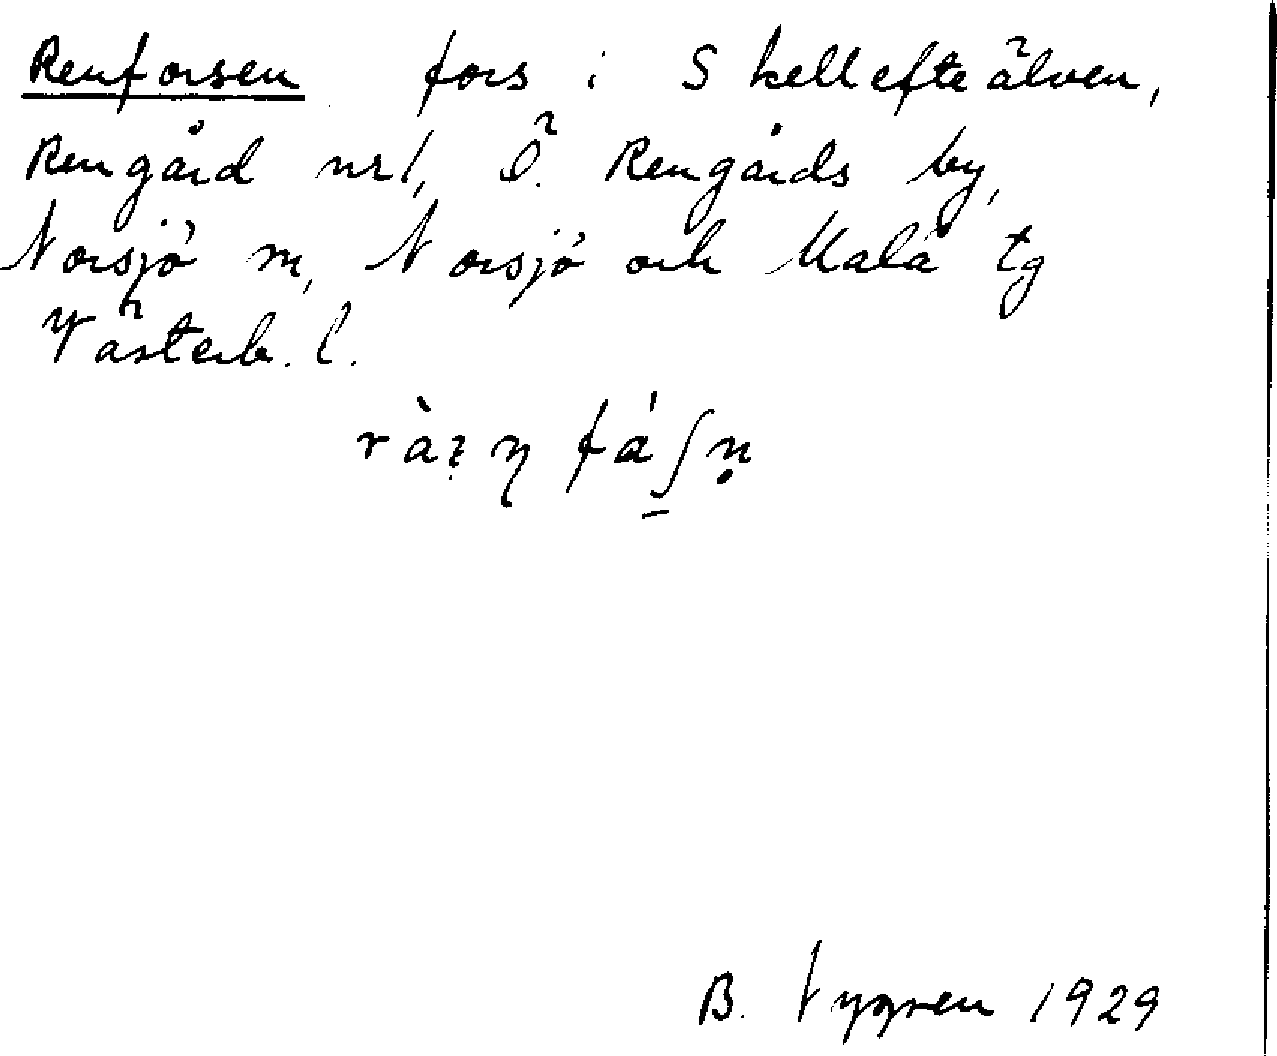 Renforsen fors i Skellefteälven,
Rengård nr 1, Ö. Rengårds by,
Norsjö sn, Norsjö och Malå tg
Västerb. l.
B. Nygren 1929